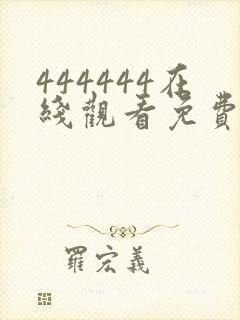 444444在
綫觀看免費
羅宏義